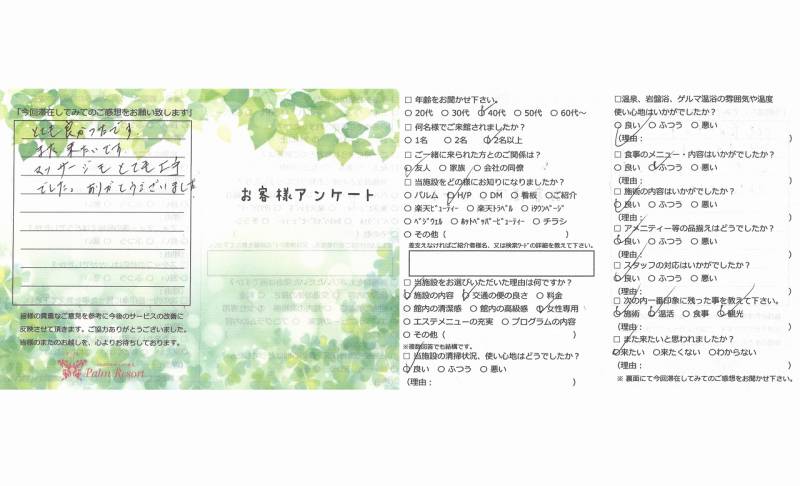 「今回滞在してみてのご感想をお願い致します」
とても良かったです。
また来たいです
マッサージもとても上手
でした。ありがとうございました!
皆様の貴重なご意見を参考に今後のサービスの改善に
反映させて頂きます。ご協力ありがとうございました。
皆様のまたのお越しを、心よりお待ちしております。
Palm Resort
お客様アンケート
□ 年齢をお聞かせ下さい。
○ 20代 ○ 30代 ○ 40代 ○ 50代 ○ 60代~
□ 何名様でご来館されましたか?
○ 1名 ○ 2名 ○ 2名以上
□ ご一緒に来られた方とのご関係は?
○ 友人 ○ 家族 ○ 会社の同僚
□ 当施設をどの様にお知りになりましたか?
○ パルム ○ H/P ○ DM ○ 看板 ○ ご紹介
○ 楽天ビューティー ○ 楽天トラベル ○ iタウンページ
○ ベジウェル ○ ホットペッパービューティー ○ チラシ
○ その他( )
差支えなければご紹介者様名、又は検索ワードの詳細を教えて下さい。
□ 当施設をお選びいただいた理由は何ですか?
○ 施設の内容 ○ 交通の便の良さ ○ 料金
○ 館内の清潔感 ○ 館内の高級感 ○ 女性専用
○ エステメニューの充実 ○ プログラムの内容
○ その他( )
※複数回答でも結構です。
□ 当施設の清掃状況、使い心地はどうでしたか?
○ 良い ○ ふつう ○ 悪い
(理由: )
□温泉、岩盤浴、ゲルマ温浴の雰囲気や温度
使い心地はいかがでしたか?
○ 良い ○ ふつう ○ 悪い
(理由: )
□ 食事のメニュー・内容はいかがでしたか?
○ 良い ○ ふつう ○ 悪い
(理由: )
□ 施術の内容はいかがでしたか?
○ 良い ○ ふつう ○ 悪い
(理由: )
□ アメニティー等の品揃えはどうでしたか?
○ 良い ○ ふつう ○ 悪い
(理由: )
□ スタッフの対応はいかがでしたか?
○ 良い ○ ふつう ○ 悪い
(理由: )
□ 次の内一番印象に残った事を教えて下さい。
○ 施術 ○ 温活 ○ 食事 ○ 観光
(理由: )
□ また来たいと思われましたか?
○ 来たい ○来たくない ○わからない
(理由: )
※ 裏面にて今回滞在してみてのご感想をお聞かせ下さい。